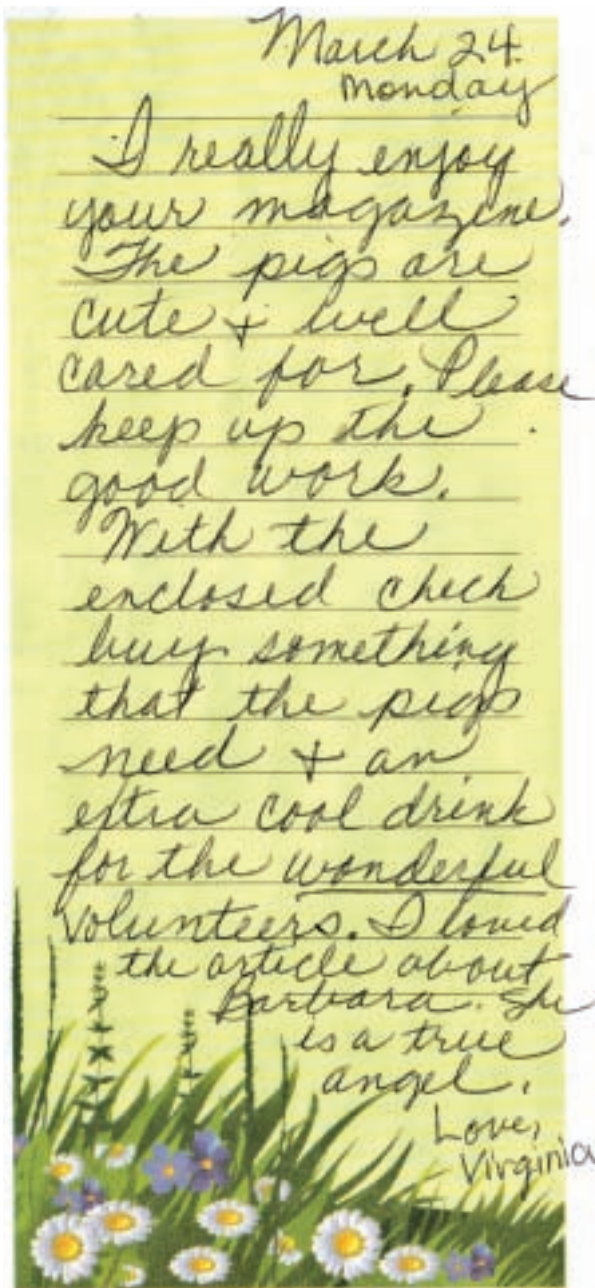 March 24.
Monday
I really enjoy
your magazine.
The pigs are
cute + well
cared for. Please
keep up the
good work.
With the
enclosed check
buy something
that the pigs
need + an
extra cool drink
for the wonderful
volunteers. I loved
the article about
Barbara. She
is a true
angel.
Love,
Virginia